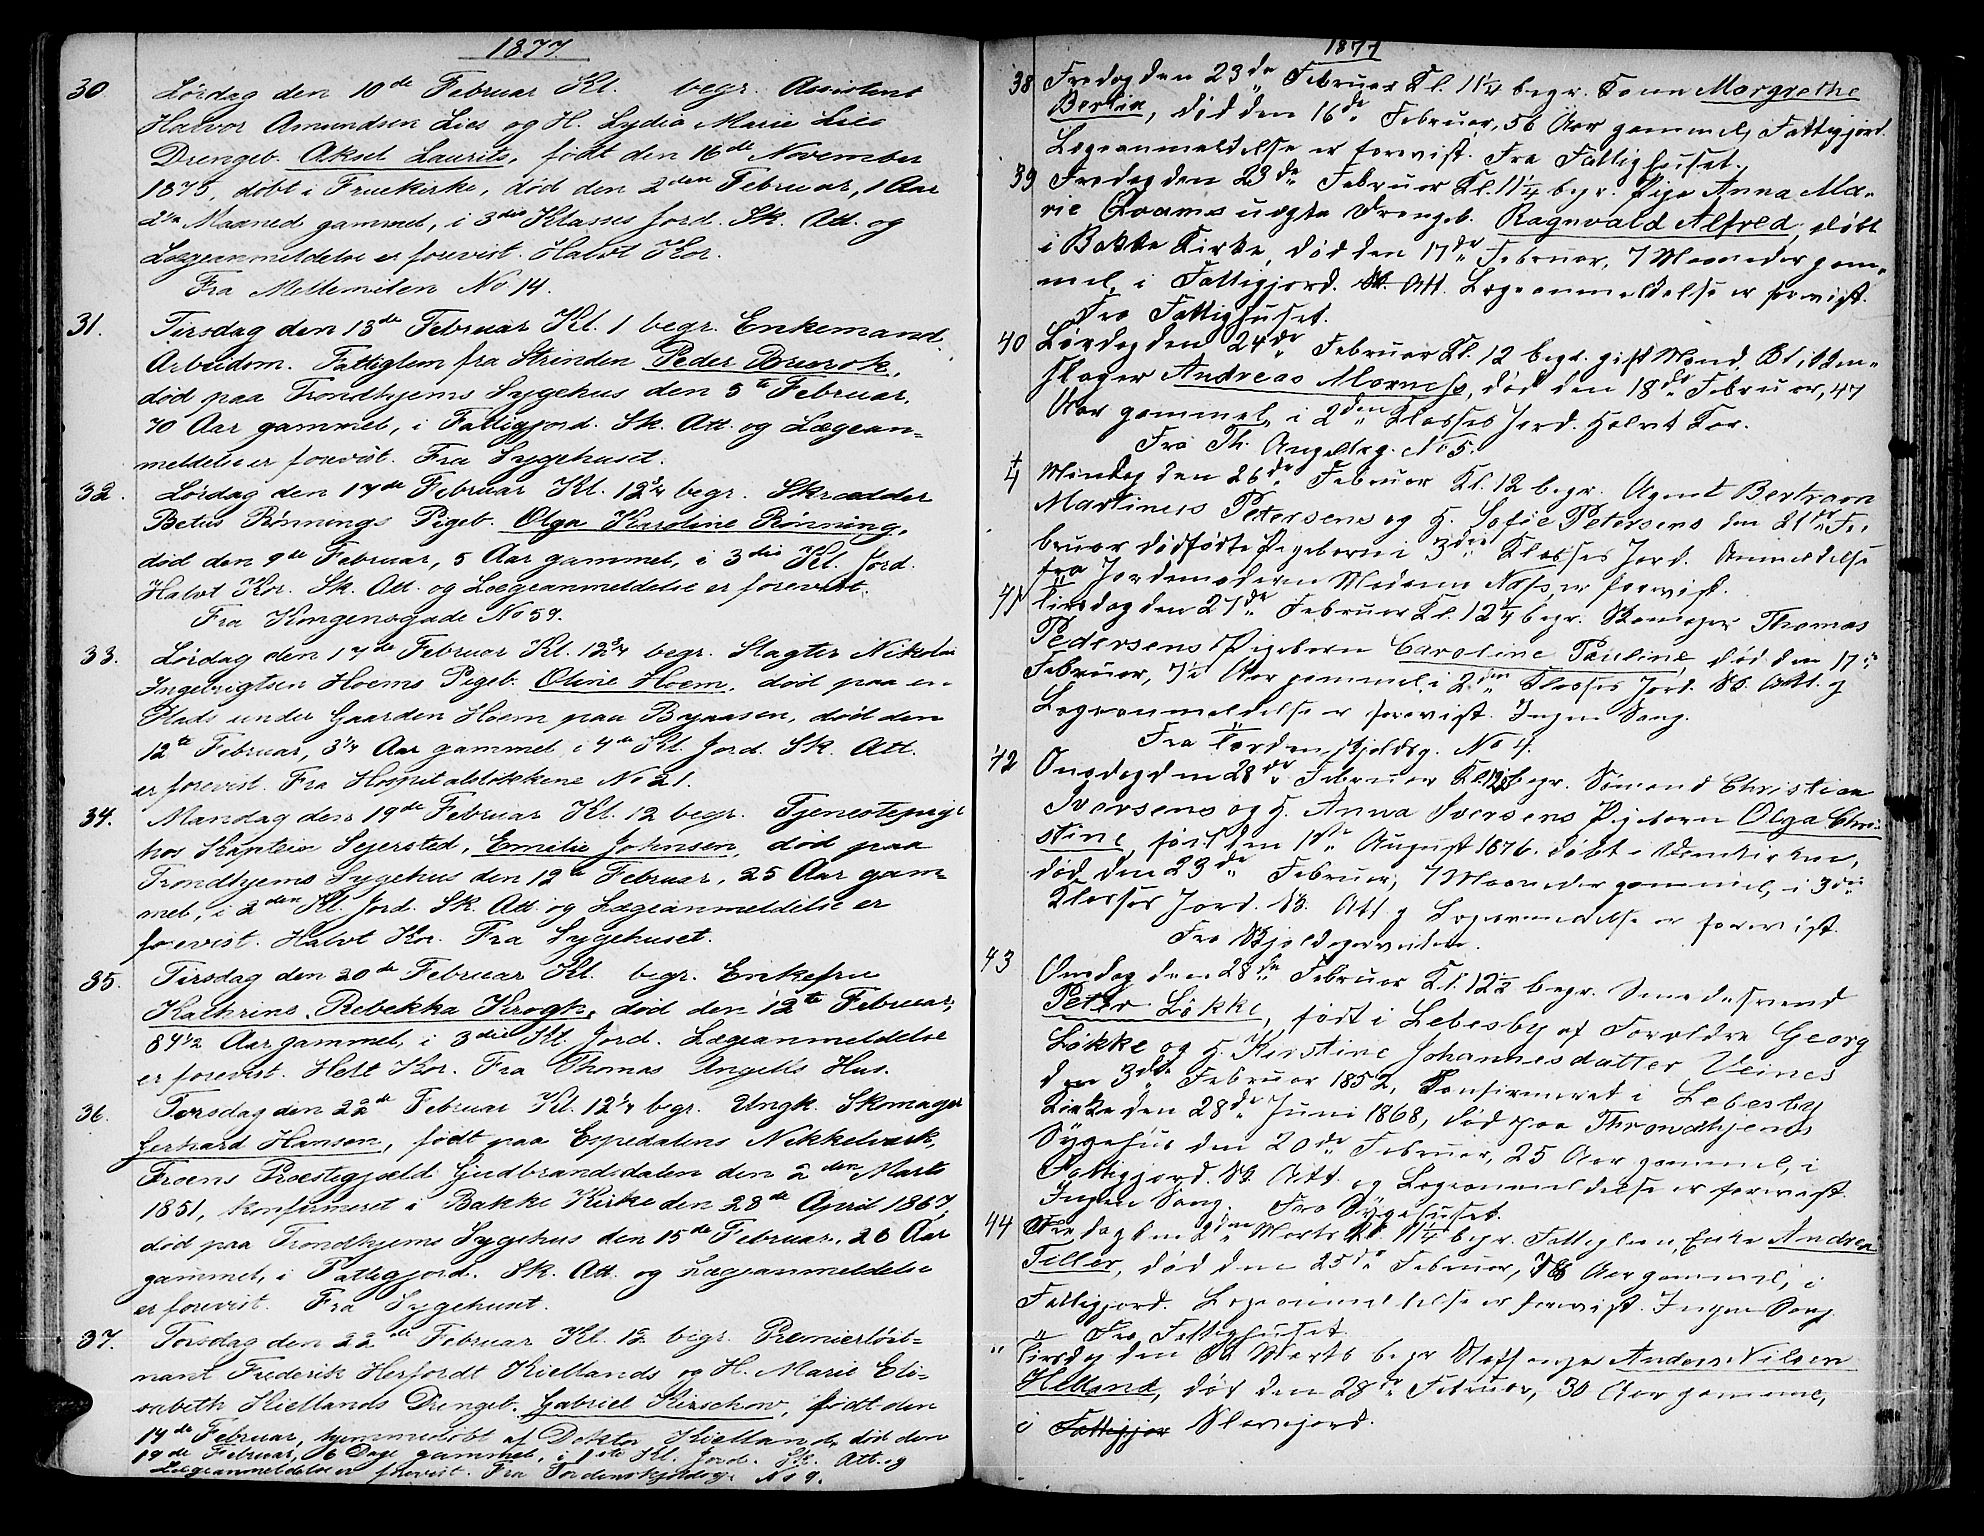 1877.
30. Lørdag den 10de Februar Kl. begr. Assistent
Halvor Amundsen Lies og H. Lydia Marie Lies
Drengeb. Aksel Laurits, født den 16de November
1875, døbt i Fruekirke, død den 2den Februar, 1 Aar
2 Maaned gammel, i 3die Klasses Jord. Sk. Att. og
Lægeanmeldelse er forevist. Halvt Kor.
Fra Mellemilen No 14.
31. Tirsdag den 13de Februar Kl. 1 begr. Enkemand
Arbeidsm. Fattiglem fra Strinden Peder Brurok,
død paa Trondhjems Sygehus den 5te Februar,
70 Aar gammel, i Fattigjord. Sk. Att. og Lægean-
meldelse er forevist. Fra Sygehuset.
32. Lørdag den 17de Februar Kl. 12 3/4 begr. Skrædder
Betus Rønnings Pigeb. Olga Karoline Rønning,
død den 9de Februar, 5 Aar gammel, i 3die Kl. Jord.
Halvt Kor. Sk. Att. og Lægeanmeldelse er forevist.
Fra Kongensgade No 59.
33. Lørdag den 17de Februar Kl. 12 3/4 begr. Slagter Nikolai
Ingebrigtsen Hoems Pigeb. Oline Hoem, død paa en
Plads under Gaarden Hoem paa Byaasen, død den
12te Februar, 3 1/4 Aar gammel i 4de Kl. Jord. Sk. Att.
er forevist. Fra Hospitalsløkkene No 21.
34. Mandag den 19de Februar Kl. 12 begr. Tjenestepige
hos Kaptein Sejersted, Emilie Johnsen, død paa
Trondhjems Sygehus den 12te Februar, 25 Aar gam-
mel, i 2den Kl. Jord. Sk. Att. og Lægeanmeldelse er
forevist. Halvt Kor. Fra Sygehuset.
35. Tirsdag den 20de Februar Kl. begr. Enkefru
Kathrine Rebekka Krogh, død den 12te Februar,
84 1/2 Aar gammel, i 3die Kl. Jord. Lægeanmeldelse
er forevist. Helt Kor. Fra Thomas Angells Hus.
36. Torsdag den 22de Februar Kl. 12 1/4 begr. Ungk. Skomager
Gerhard Hansen, født paa Espedalens Nikkelverk,
Froens Præstegjæld Gudbrandsdalen den 2den Marts
1851, konfirmeret i Bakke Kirke den 28de April 1867,
død paa Trondhjems Sygehus den 15de Februar, 26 Aar
gammel, i Fattigjord. Sk. Att. og Lægeanmeldelse
er forevist. Fra Sygehuset.
37. Torsdag den 22de Februar Kl. 12 begr. Premierløit-
nant Frederik Herfordt Kiellands og H. Marie Eli-
sabeth Kiellands Drengeb. Gabriel Kirschow, født den
14de Februar, hjemmedøbt af Doktor Kielland, død den
19de Februar, 6 Dage gammel, i 1ste Kl. Jord. Sk. Att. og
Lægeanmeldelse er forevist. Fra Tordenskjoldsg. No 9.
1877
38 Fredag den 23de Februar Kl. 11 1/4 begr. Margrethe
Berlin, død den 16de Februar, 56 Aar gammel, Fattigjord.
Lægeanmeldelse er forevist. Fra Fattighuset.
39 Fredag den 23de Februar Kl. 11 1/4 begr. Pige Anna Ma-
rie Qvams uægte Drengeb. Ragnvald Alfred, døbt
i Bakke Kirke, død den 17de Februar, 7 Maaneder gam-
mel, i Fattigjord. Sk. Att. Lægeanmeldelse er forevist.
Fra Fattighuset.
40 Lørdag den 24de Februar Kl. 12 begr. gift Mand, Blikken-
slager Andreas Mornes, død den 18de Februar, 47
Aar gammel, i 2den Klasses Jord. Halvt Kor.
Fra Th. Angellsg. No 5.
Mandag den 26de Februar Kl. 12 begr. Agent Bertram
Martinus Petersens og H. Sofie Petersens den 21de Fe-
bruar dødfødte Pigebarn i 3die Klasses Jord. Anmeldelse
fra Jordemoderen Madame Næss er forevist.
41 Tirsdag den 27de Februar Kl. 12 1/4 begr. Skomager Thomas
Pedersens Pigebarn Caroline Pauline, død den 17de
Februar, 7 1/2 Aar gammel, i 2den Klasses Jord. Sk. Att. og
Lægeanmeldelse er forevist. Ingen Sang.
Fra Tordenskjoldsg. No 4.
42 Onsdag den 28de Februar Kl. 12 begr. Sømand Christian
Iversens og H. Anna Iversens Pigebarn Olga Chri-
stine, født den 1ste August 1876, døbt i Domkirken,
død den 23de Februar, 7 Maaneder gammel, i 3die
Klasses Jord. Sk. Att og Lægeanmeldelse er forevist.
Fra Skjoldagerveiten.
43 Onsdag den 28de Februar Kl. 12 1/2 begr. Smedesvend
Peter Løkke, født i Lebesby af Forældre Georg
Løkke og H. Kirstine Johannesdatter Veines
den 3die Februar 1852, Konfirmeret i Lebesby
Kirke den 28de Juni 1868, død paa Throndhjems
Sygehus den 20de Februar, 25 Aar gammel, i
Fattigjord. Sk. Att. og Lægeanmeldelse er forevist.
Ingen Sang. Fra Sygehuset.
44 Fredag den 2den Marts Kl. 11 1/4 begr. Fattiglem, Enke Andrea
Tiller, død den 25de Februar, Aar gammel, i
Fattigjord. Lægeanmeldelse er forevist. Ingen Sang.
" Fra Fattighuset.
" Tirsdag den Marts begr Anders Nilsen
Helland, død den 28de Februar, 30 Aar gammel,
i Fattigjor Slavejord.